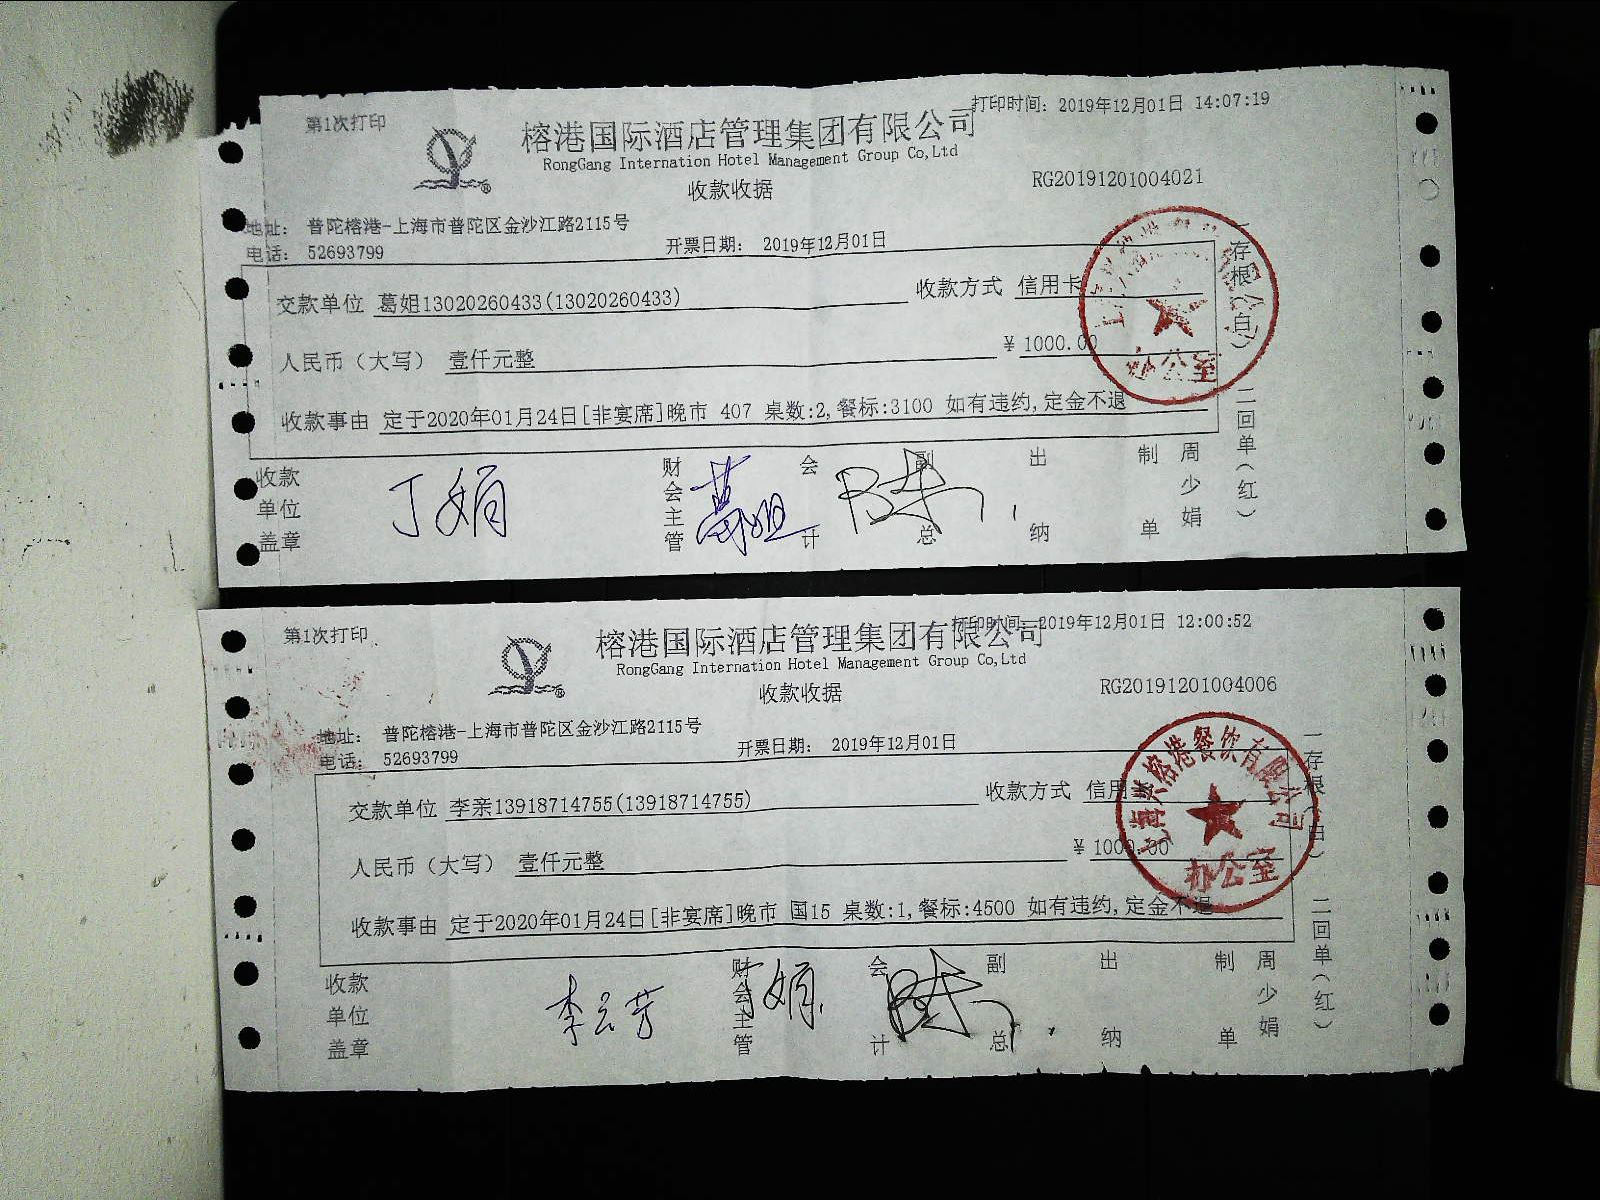 第1次打印
打印时间: 2019年12月01日 14:07:19
榕港国际酒店管理集团有限公司
RongGang Internation Hotel Management Group Co,Ltd
收款收据
RG20191201004021
地址: 普陀榕港-上海市普陀区金沙江路2115号
电话: 52693799
开票日期: 2019年12月01日
交款单位 葛姐13020260433(13020260433)
收款方式 信用卡
人民币（大写） 壹仟元整
¥ 1000.00
收款事由 定于2020年01月24日[非宴席]晚市 407 桌数:2,餐标:3100 如有违约,定金不退
一存根(白) 二回单(红)
公室
收款单位盖章
丁娟
财会主管
葛姐
会计
副总
出纳
制单
周少娟
第1次打印
打印时间: 2019年12月01日 12:00:52
榕港国际酒店管理集团有限公司
RongGang Internation Hotel Management Group Co,Ltd
收款收据
RG20191201004006
地址: 普陀榕港-上海市普陀区金沙江路2115号
电话: 52693799
开票日期: 2019年12月01日
交款单位 李亲13918714755(13918714755)
收款方式 信用卡
人民币（大写） 壹仟元整
¥ 1000.00
收款事由 定于2020年01月24日[非宴席]晚市 国15 桌数:1,餐标:4500 如有违约,定金不退
一存根(白) 二回单(红)
榕港餐饮有限公司
办公室
收款单位盖章
李云芳
财会主管
丁娟
会计
副总
出纳
制单
周少娟